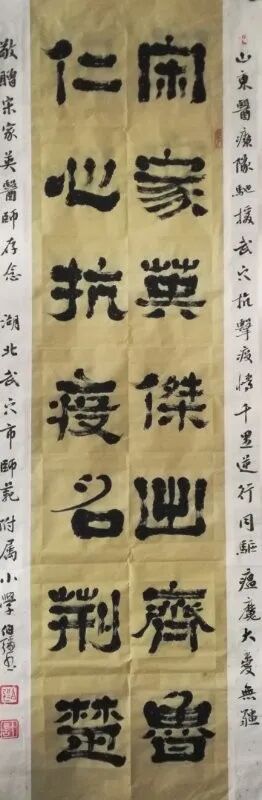 山東醫療隊馳援武穴抗擊疫情千里逆行同驅瘟魔大愛無疆
宋家英傑出齊魯
仁心抗疫名荊楚
敬贈宋家英醫師存念 湖北武穴市師範附属小學